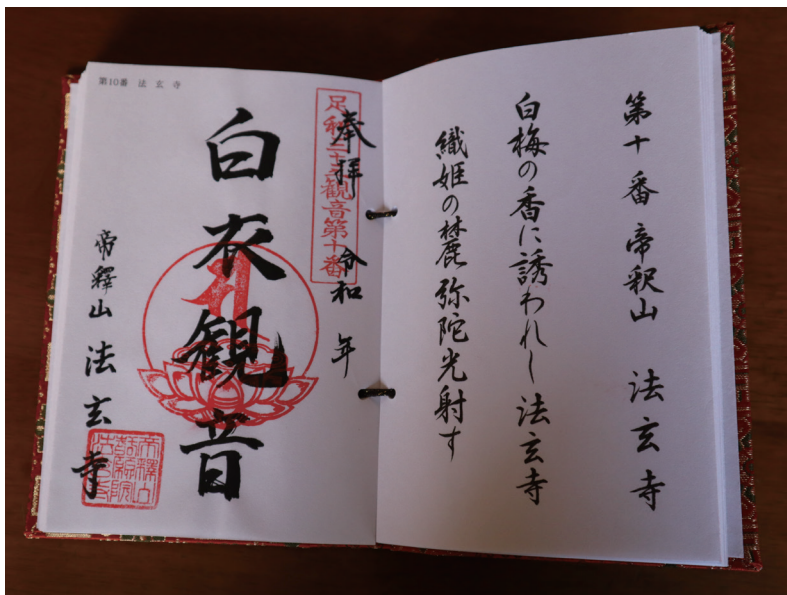 第十番 帝釈山 法玄寺
白梅の香に誘われし法玄寺
織姫の麓弥陀光射す
足利三十三観音第十番
奉拝 令和 年
白衣観音
帝釋山 法玄寺
第10番 法玄寺